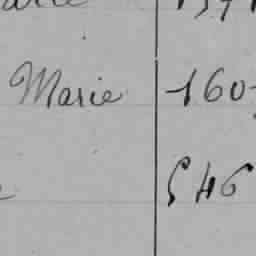 Marie 160
546